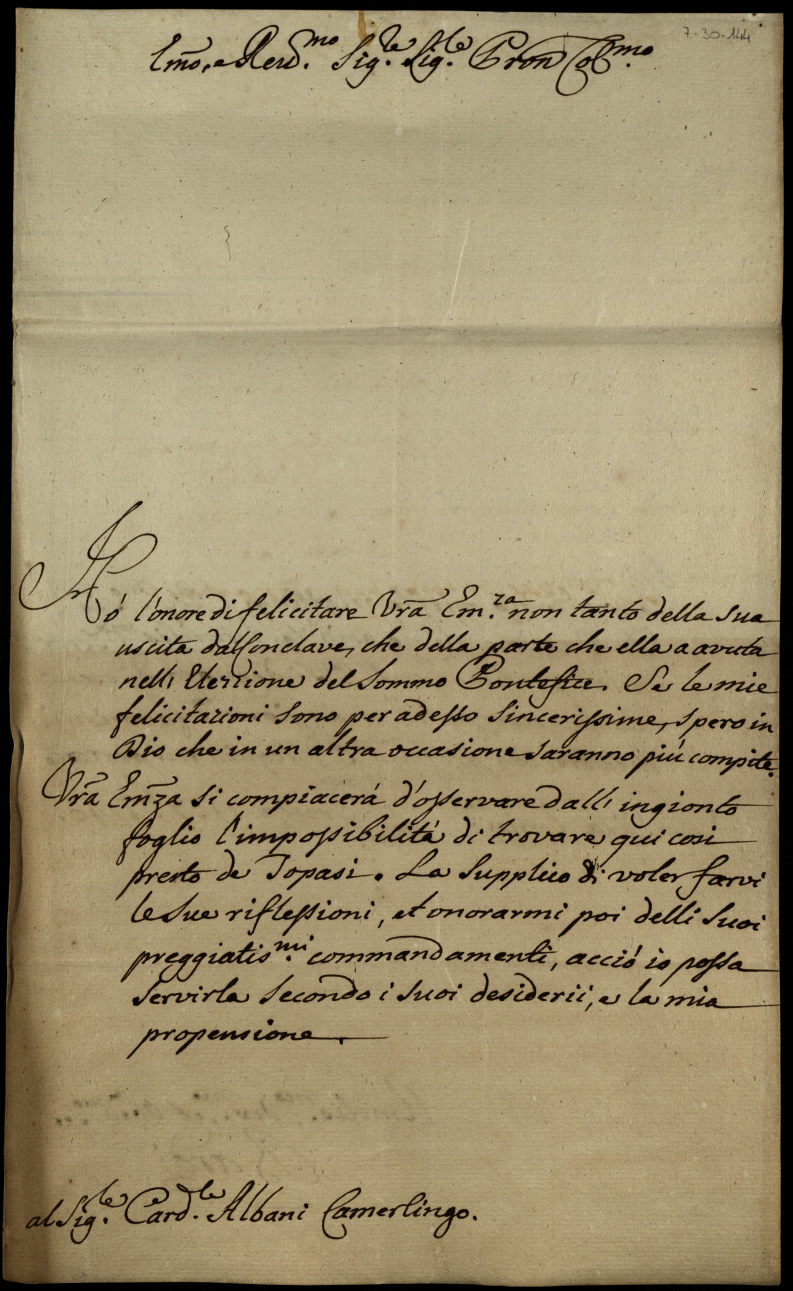 7-30-144
Emo, e Revd.mo Sig.re Sig.re Pron Col.mo
Hó l'onore di felicitare Vra Em.za non tanto della sua
uscita dal Conclave, che della parte che ella a avuta
nell' Elezzione del Sommo Pontefice. Se le mie
felicitazioni sono per adesso sincerissime, spero in
Dio che in un altra occasione saranno più compite.
Vra Emza si compiacerá d'osservare dall' ingionto
foglio l'impossibilitá di trovare qui cosi
presto de Topasi. La Supplico di voler farvi
le sue riflessioni, et onorarmi poi delli suoi
preggiatis.mi commandamenti, acció io possa
servirla secondo i suoi desiderii, e la mia
propensione.
al Sig.re Card.le Albani Camerlingo.